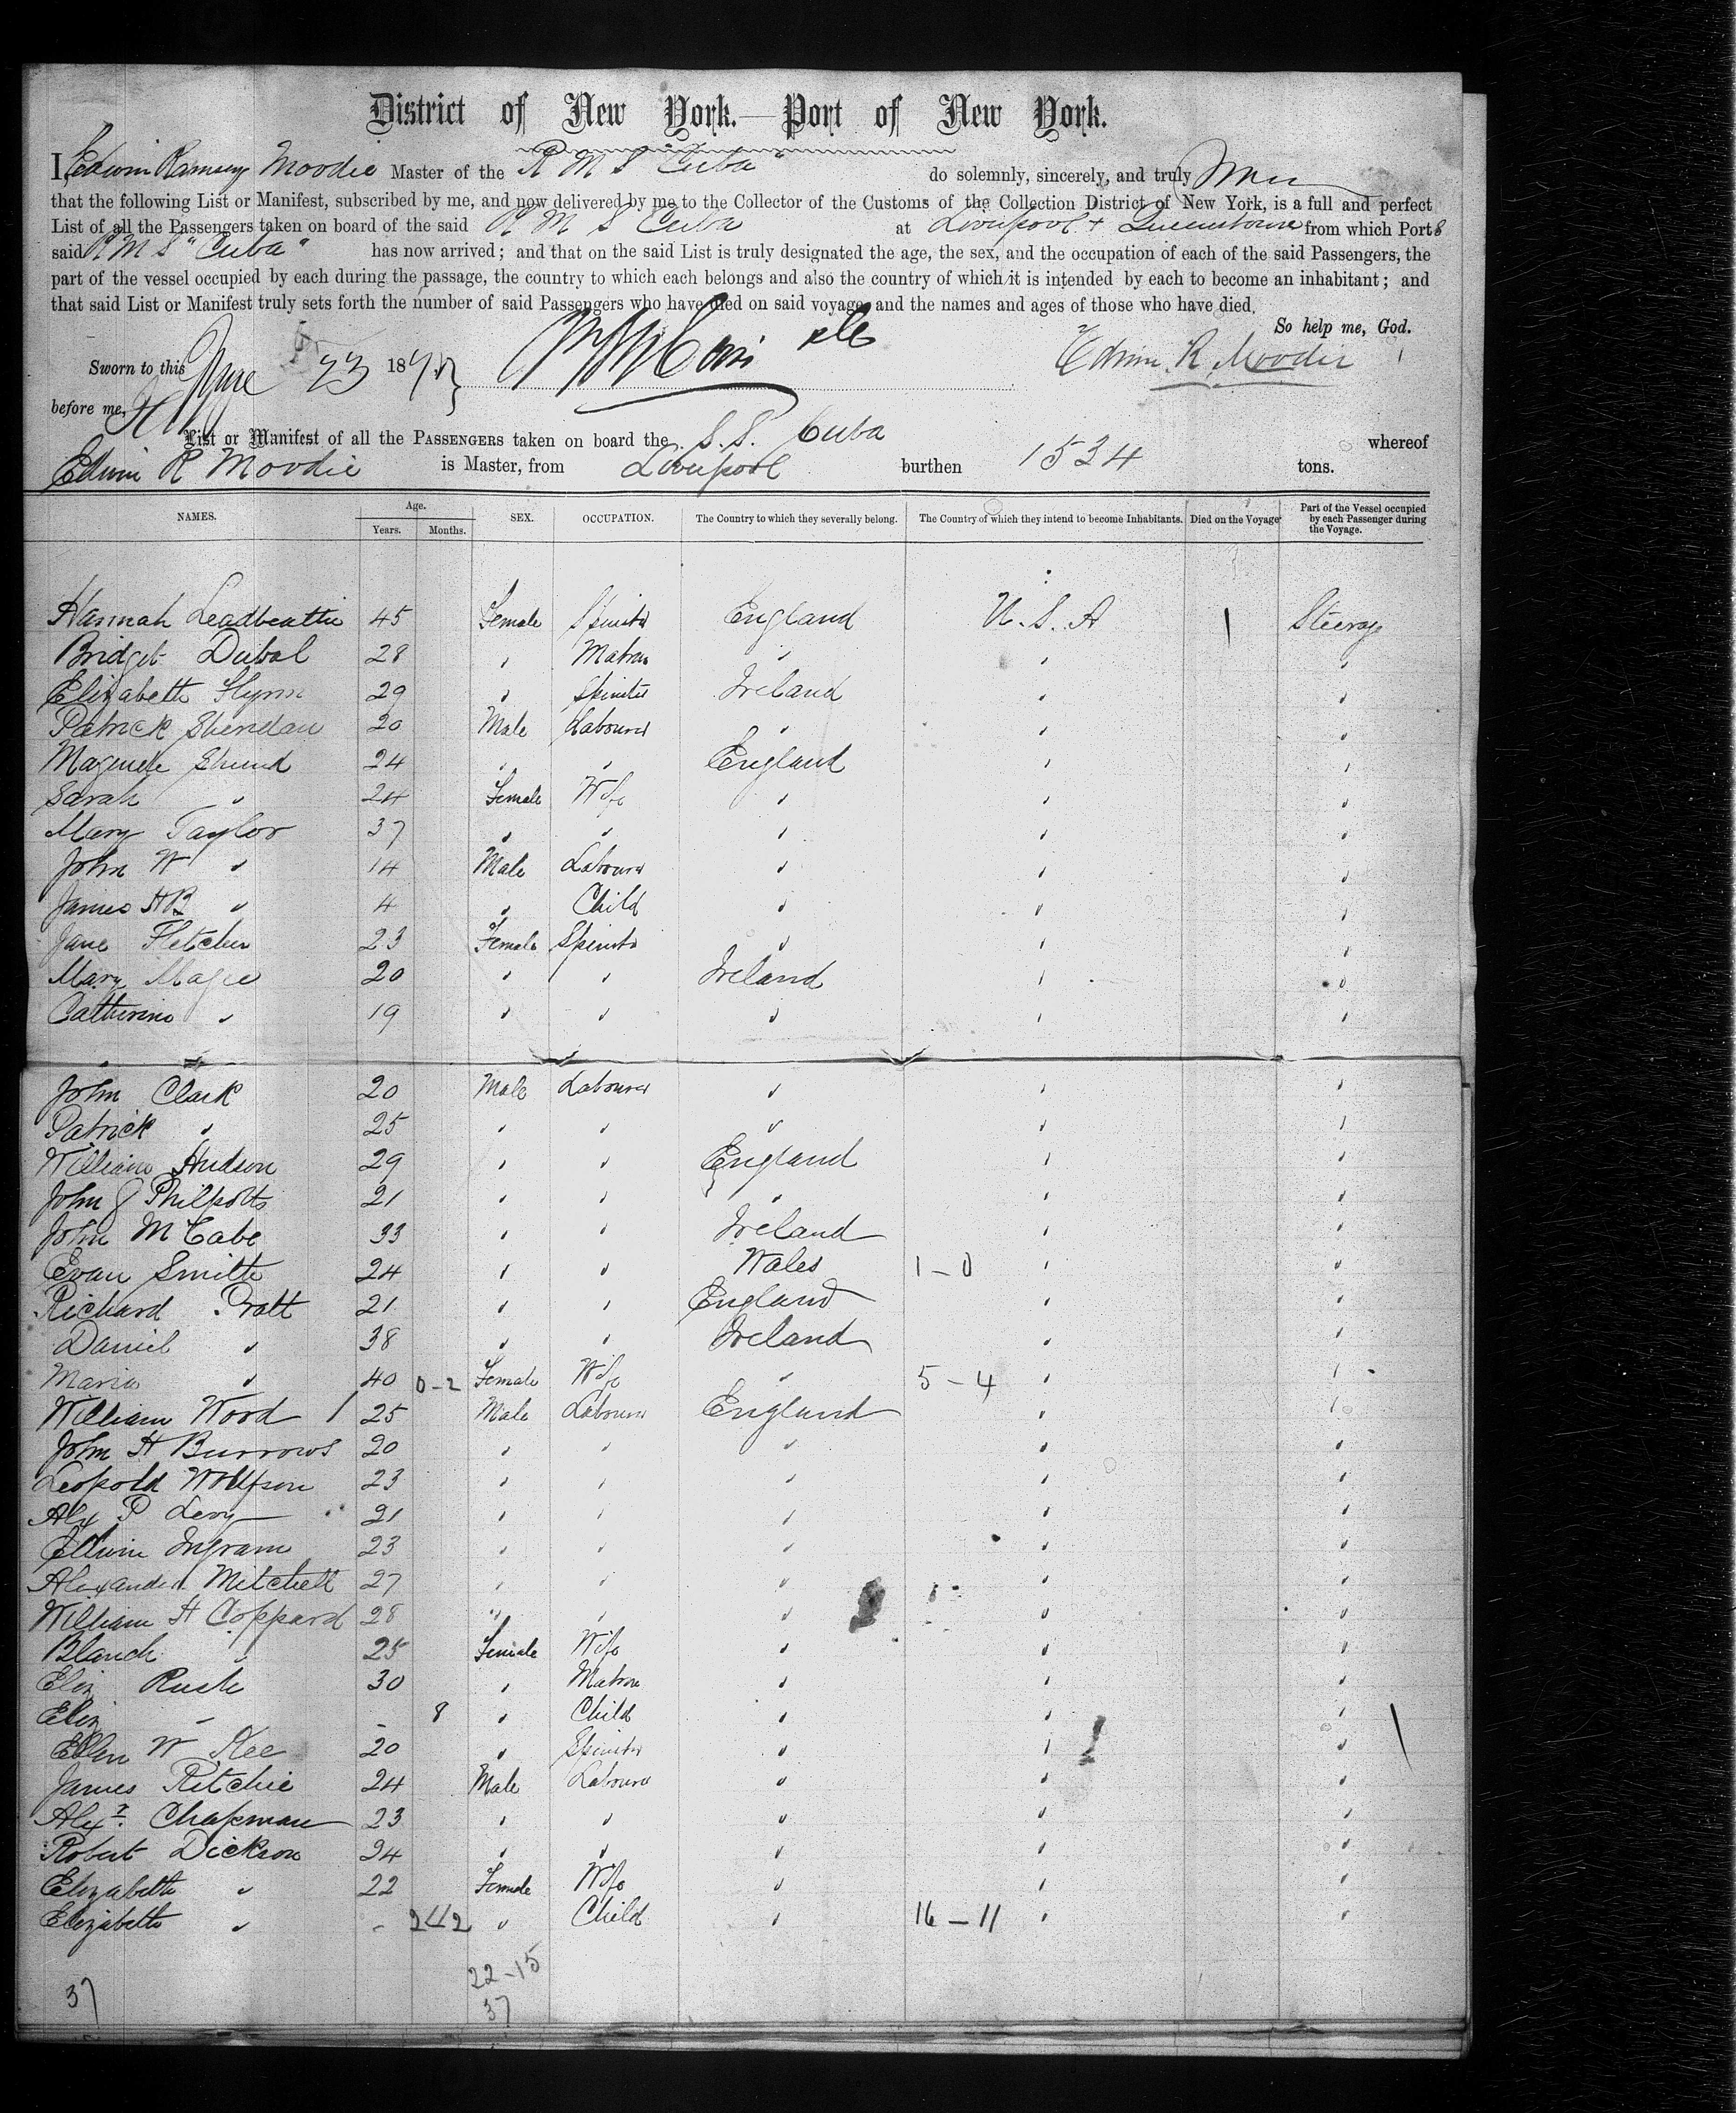 District of New York.—Port of New York.
I, Edwin Ramsay Moodie Master of the R M S "Cuba" do solemnly, sincerely, and truly
that the following List or Manifest, subscribed by me, and now delivered by me to the Collector of the Customs of the Collection District of New York, is a full and perfect
List of all the Passengers taken on board of the said R M S Cuba at Liverpool + Queenstown from which Port s
said R M S "Cuba" has now arrived; and that on the said List is truly designated the age, the sex, and the occupation of each of the said Passengers, the
part of the vessel occupied by each during the passage, the country to which each belongs and also the country of which it is intended by each to become an inhabitant; and
that said List or Manifest truly sets forth the number of said Passengers who have died on said voyage, and the names and ages of those who have died.
So help me, God.
Sworn to this June 23 187 Edwin R Moodie
before me,
List or Manifest of all the Passengers taken on board the S. S. Cuba whereof
Edwin R Moodie is Master, from Liverpool burthen 1534 tons.
NAMES. Age. Years. Months. SEX. OCCUPATION. The Country to which they severally belong. The Country of which they intend to become Inhabitants. Died on the Voyage Part of the Vessel occupied by each Passenger during the Voyage.
Hannah Leadbeattie 45 Female Spinster England U. S. A Steerage
Bridget Dubal 28 " Matron " " "
Elizabeth Flynn 29 " Spinster Ireland " "
Patrick Sheridan 20 Male Labourer " " "
24 " " England " "
Sarah " 24 Female Wife " " "
Mary Taylor 37 " " " " "
John W " 14 Male Labourer " " "
James H B " 4 " Child " " "
Jane Fletcher 23 Female Spinster " " "
Mary Magee 20 " " Ireland " "
Catherine " 19 " " " " "
John Clark 20 Male Labourer " " "
Patrick " 25 " " " " "
William Hudson 29 " " England " "
John J Philpotts 21 " " " " "
John McCabe 33 " " Ireland " "
Evan Smith 24 " " Wales 1-0 " "
Richard Pratt 21 " " England " "
Daniel " 38 " " Ireland " "
Maria " 40 0-2 Female Wife " 5-4 " "
William Wood 25 Male Labourer England " "
John H Burrows 20 " " " " "
Leopold Wolfson 23 " " " " "
Alex P Levy 21 " " " " "
Edwin Ingram 23 " " " " "
Alexander Mitchell 27 " " " " "
William H Coppard 28 " " " " "
Blanch " 25 Female Wife " " "
Eliz Rush 30 " Matron " " "
Eliz " - 8 " Child " " "
Ellen W Kee 20 " Spinster " " "
James Ritchie 24 Male Labourer " " "
Alexr. Chapman 23 " " " " "
Robert Dickson 24 " " " " "
Elizabeth " 22 Female Wife " " "
Elizabeth " - " Child " 16-11 " "
22-15
37 37